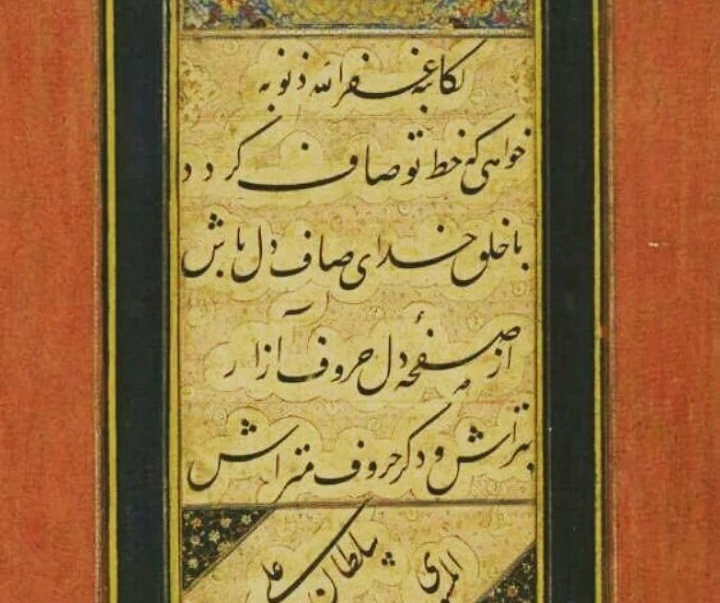 لکاتبه غفر الله ذنوبه
خواهی که خط تو صاف گردد
با خلق خدای صاف دل باش
از صفحهٔ دل حروف آزار
بتراش و دکر حروف متراش
سلطان علی المشهدی